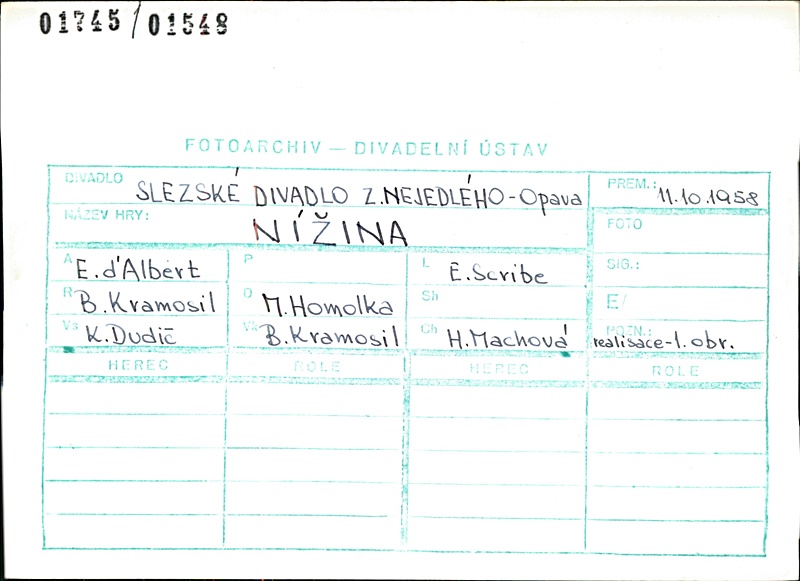 01745/01548
FOTOARCHIV — DIVADELNÍ ÚSTAV
DIVADLO SLEZSKÉ DIVADLO Z.NEJEDLÉHO-Opava PREM.: 11.10.1958
NÁZEV HRY: NÍŽINA FOTO
A E.d'Albert P L E.Scribe SIG.:
R B.Kramosil D M.Homolka Sh E/
Vs K.Dudič Vk B.Kramosil Ch H.Machová POZN.: realisace-1.obr.
HEREC ROLE HEREC ROLE